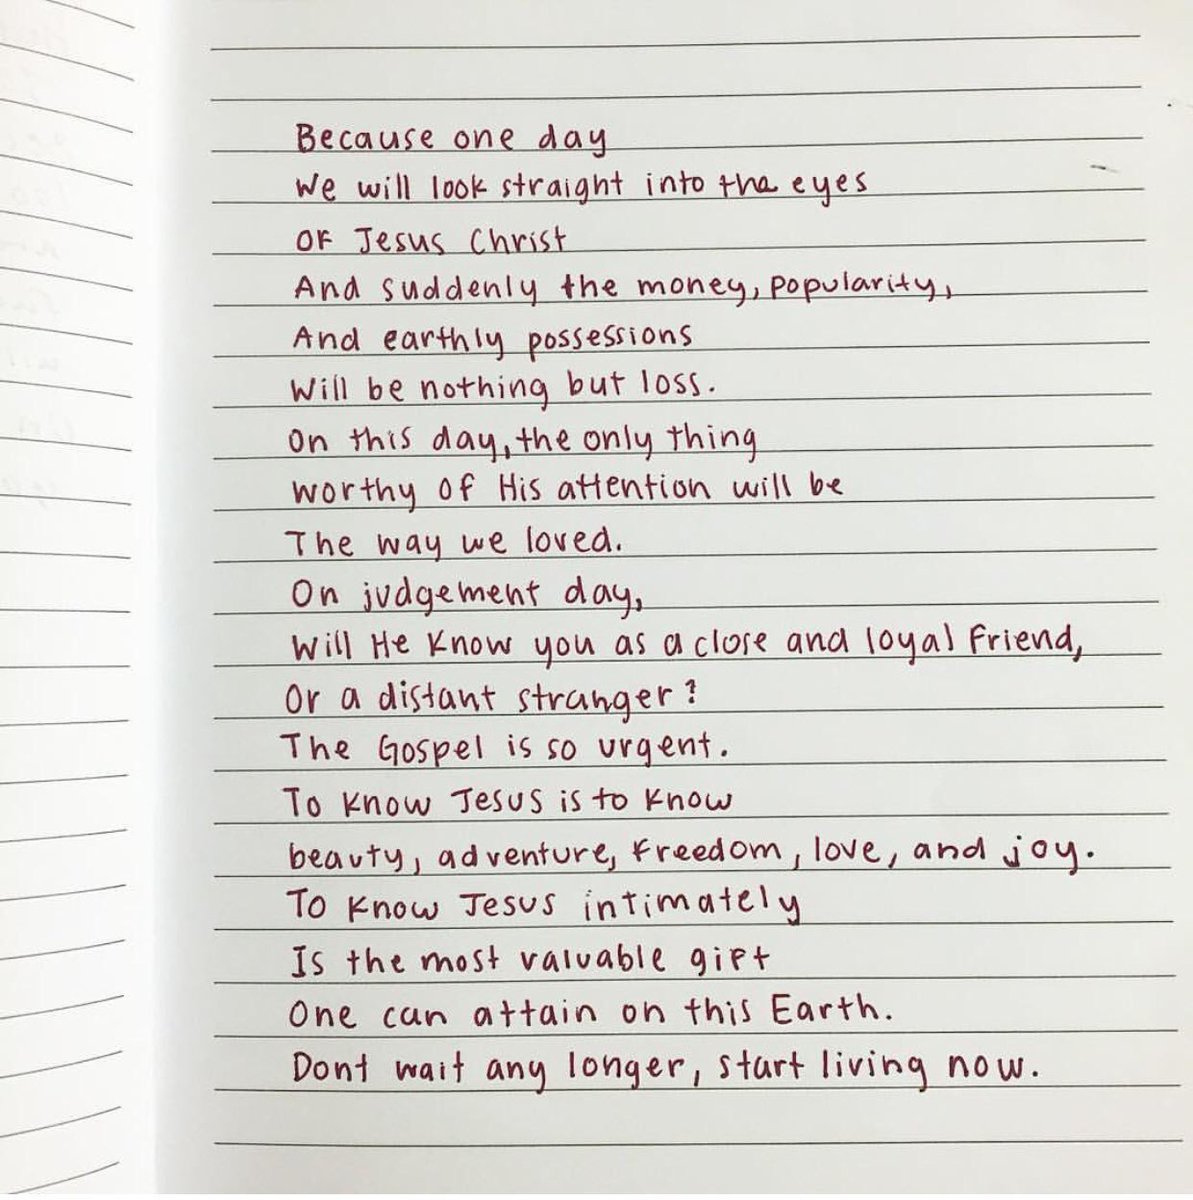 Because one day
We will look straight into the eyes
OF Jesus Christ
And suddenly the money, popularity,
And earthly possessions
Will be nothing but loss.
On this day, the only thing
worthy of His attention will be
The way we loved.
On judgement day,
Will He know you as a close and loyal friend,
Or a distant stranger?
The Gospel is so urgent.
To know Jesus is to know
beauty, adventure, freedom, love, and joy.
To know Jesus intimately
Is the most valuable gift
One can attain on this Earth.
Dont wait any longer, start living now.